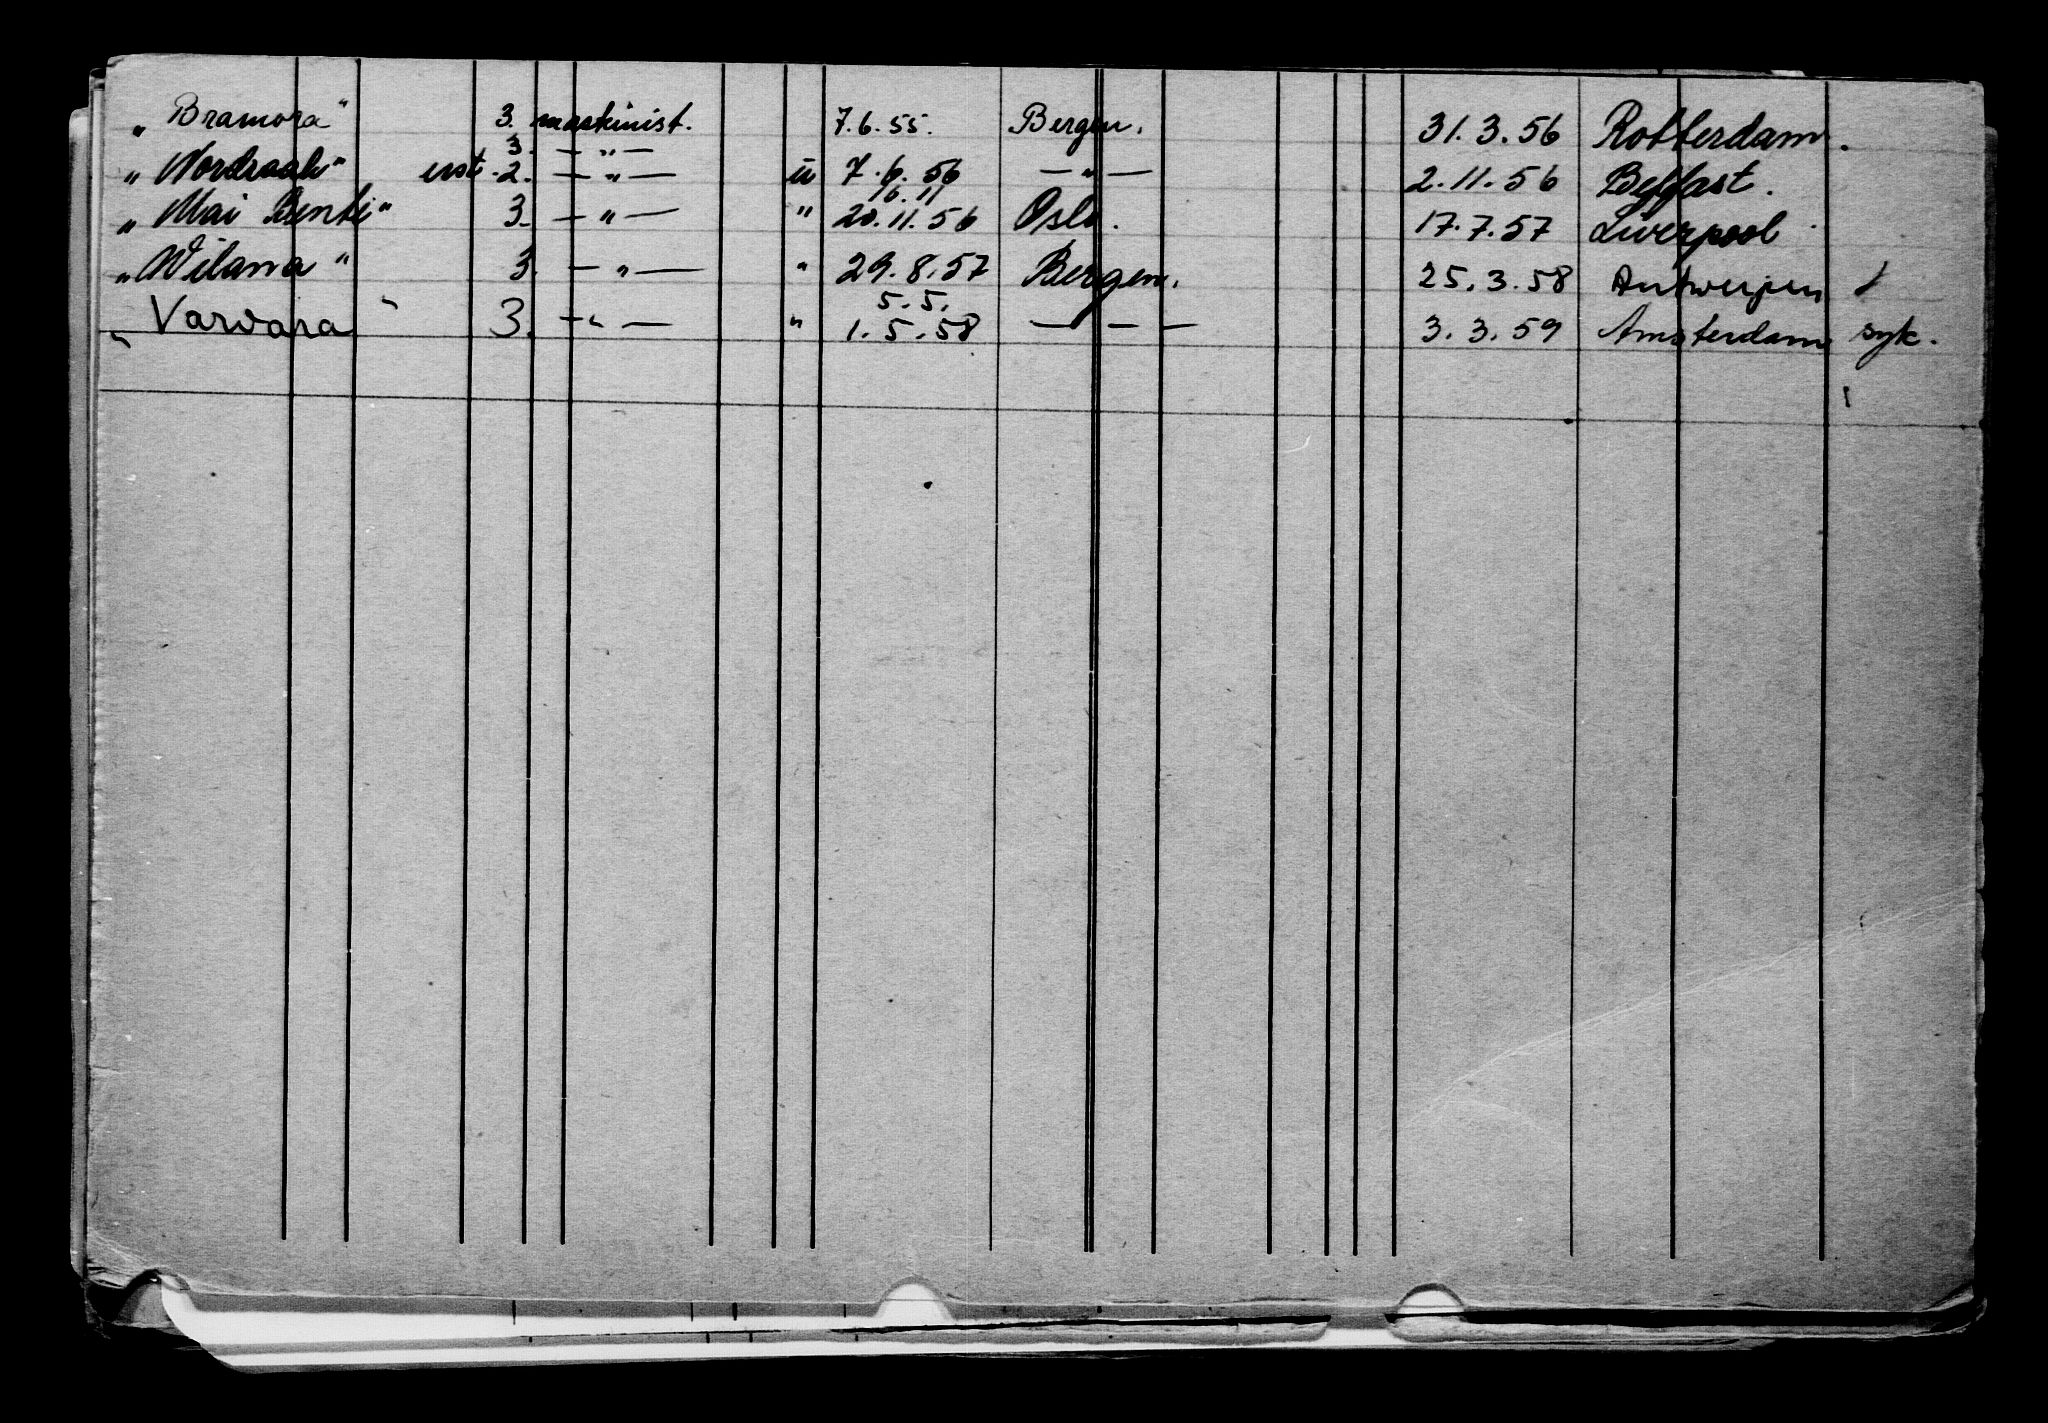 „ Bramora" 3. maskinist. 7.6.55. Bergen. 31.3.56 Rotterdam.
3. — " —
„ Nordraak" erst. 2. — " — ü 7.6.56 — " — 2.11.56 Belfast.
16.11
„ Mai Bente" 3. — " — " 20.11.56 Oslo. 17.7.57 Liverpool
„ Wilana" 3. — " — " 29.8.57 Bergen. 25.3.58 Antwerpen
5.5.
„ Varvara" 3. — " — " 1.5.58 — — — 3.3.59 Amsterdam syk.